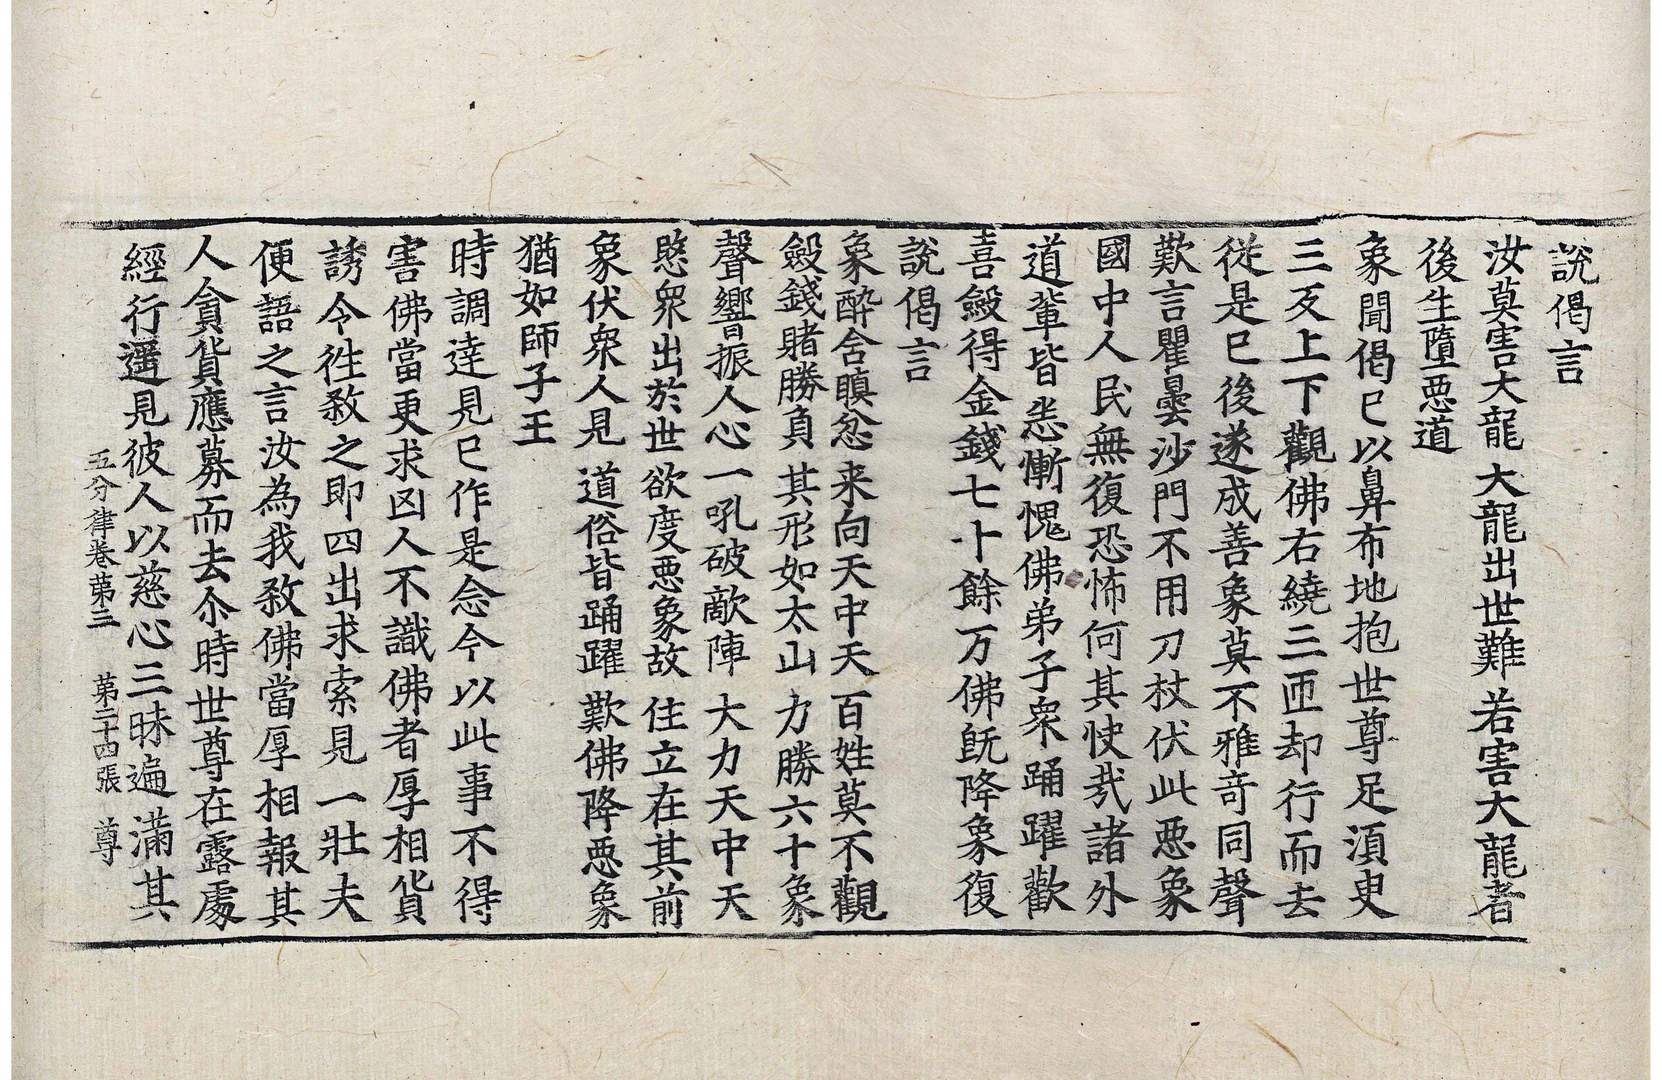 說偈言
汝莫害大龍 大龍出世難 若害大龍者
後生墮惡道
象聞偈已以鼻布地抱世尊足須臾
三反上下觀佛右繞三匝却行而去
從是已後遂成善象莫不雅奇同聲
歎言瞿曇沙門不用刀杖伏此惡象
國中人民無復恐怖何其快㦲諸外
道輩皆恙慚愧佛弟子衆踊躍歡
喜斂得金錢七十餘万佛旣降象復
說偈言
象醉含瞋忿 来向天中天 百姓莫不觀
斂錢賭勝負 其形如太山 力勝六十象
聲響振人心 一吼破敵陣 大力天中天
愍衆出於世 欲度惡象故 住立在其前
象伏衆人見 道俗皆踊躍 歎佛降惡象
猶如師子王
時調達見已作是念今以此事不得
害佛當更求凶人不識佛者厚相貨
誘令徃敎之即四出求索見一壯夫
便語之言汝為我敎佛當厚相報其
人貪貨應募而去尒時世尊在露處
經行遥見彼人以慈心三昧遍滿其
五分律卷第三 第二十四張 尊